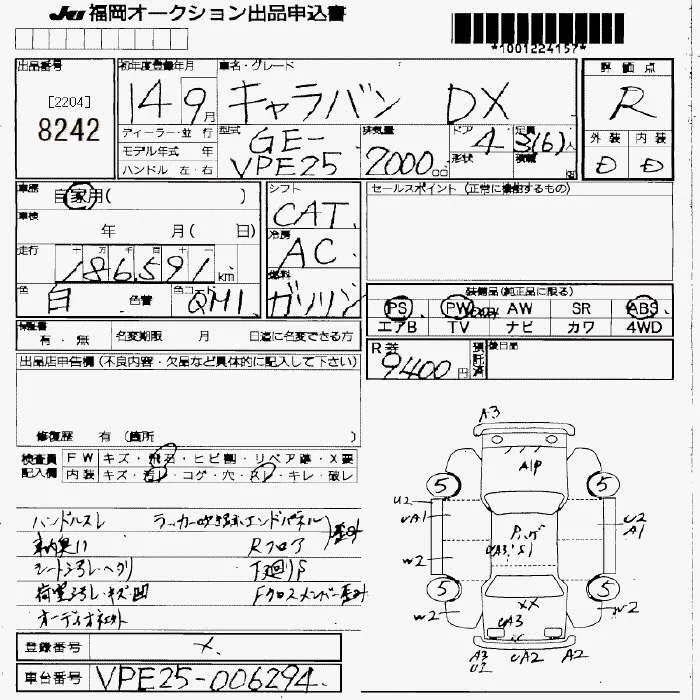 JU 福岡オークション出品申込書
*1001224157*
出品番号
[2204]
8242
初年度登録年月
14 9月
車名・グレード
キャラバン DX
ディーラー・並 行
モデル年式 年
ハンドル 左・右
型式
GE-
VPE25
排気量
2000cc
ドア
4
形状
定員
3(6)人
積載
評価点
R
外装 内装
D D
車歴
自家用( )
車検
年 月( 日)
走行
十 万 千 百 十 一
186,591 km
色
白
色替
色コード
QM1
シフト
CAT
冷房
AC
燃料
ガソリン
セールスポイント (正常に機能するもの)
装備品(純正品に限る)
PS PW AW SR ABS
エアB TV ナビ カワ 4WD
保証書
有・無
名変期限 月 日迄に名変できる方
R券
9400円
預託済
後日品
出品店申告欄 (不良内容・欠品など具体的に記入して下さい)
修復歴 有 (箇所 )
検査員
記入欄
FW キズ・飛石・ヒビ割・リペア跡・X要
内装 キズ・汚レ・コゲ・穴・スレ・キレ・破レ
ハンドルスレ
ラッカー吹き跡
エンドパネル
歪み
Rフロア
シート汚レ・ヘタリ
下廻りS
荷室汚レ・キズ凹
Fクロスメンバー歪み
オーディオ
A3
A/P
5 5
U2
UA1
U2
A1
W2
5 5
W2
W2
XX
UA3
A3
U2
UA2
A2
登録番号
車台番号
VPE25-006294